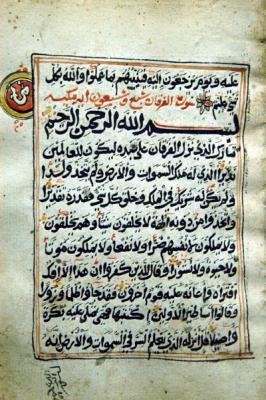 عليه ويوم يرجعون إليه فينبئهم بما عملوا والله بكل
شيء عليم سورة الفرقان سبع وسبعون آية مكية
بسم الله الرحمن الرحيم
تبارك الذي نزل الفرقان على عبده ليكون للعالمين
نذيرا الذي له ملك السموات والأرض ولم يتخذ ولدا
ولم يكن له شريك في الملك وخلق كل شيء فقدره تقديرا
واتخذوا من دونه آلهة لا يخلقون شيئا وهم يخلقون
ولا يملكون لأنفسهم ضرا ولا نفعا ولا يملكون موتا
ولا حيوة ولا نشورا وقال الذين كفروا إن هذا إلا إفك
افتراه وأعانه عليه قوم آخرون فقد جاؤا ظلما وزورا
وقالوا أساطير الأولين اكتتبها فهي تملى عليه بكرة
وأصيلا قل أنزله الذي يعلم السر في السموات والأرض إنه